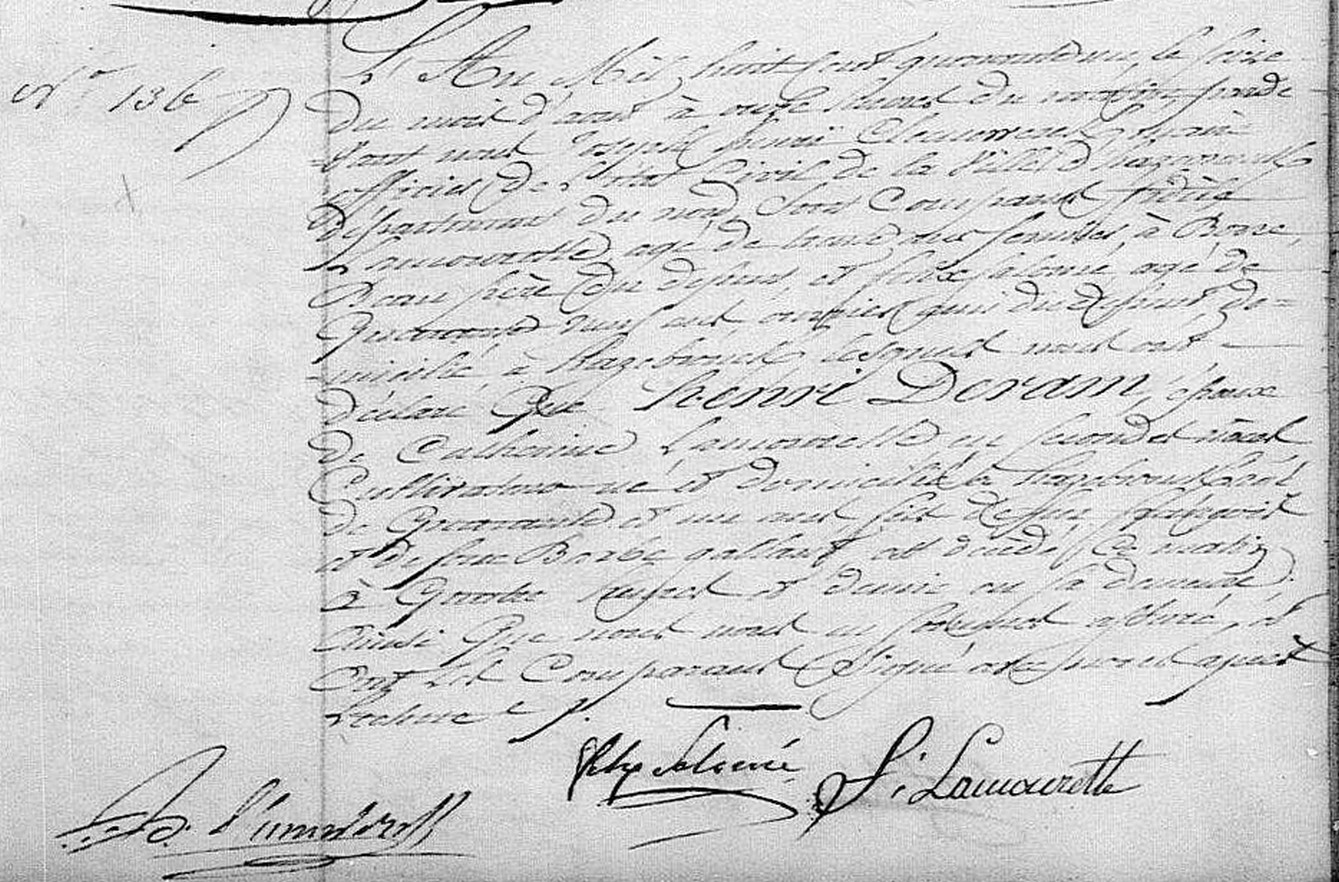 N.° 136
L'An Mil huit cent quarante un, le seize
du mois d'aout à onze heures du matin, parde
vant nous Joseph henri Cleenewerck, maire
officier de l'état Civil de la Ville d'hazebrouck
département du nord, sont Comparus
Lamourette, agé de trente, à Borre,
Beau frère du défunt, et félix Salomé, agé de
Quarante neuf ans ouvrier, du défunt, do=
micilié à Hazebrouck, lesquels nous ont
déclaré Que henri Deram, époux
de Catherine Lamourette en secondes noces
Cultivateur né et domicilié à hazebrouck agé
de Quarante et un ans, fils de feu
et de feue gallant, est décédé Ce matin
à Quatre heures et demie en sa demeure,
Ainsi Que nous nous en sommes assuré, et
Ont les Comparants Signé avec nous après
Lecture
félix Salomé S: Lamourette